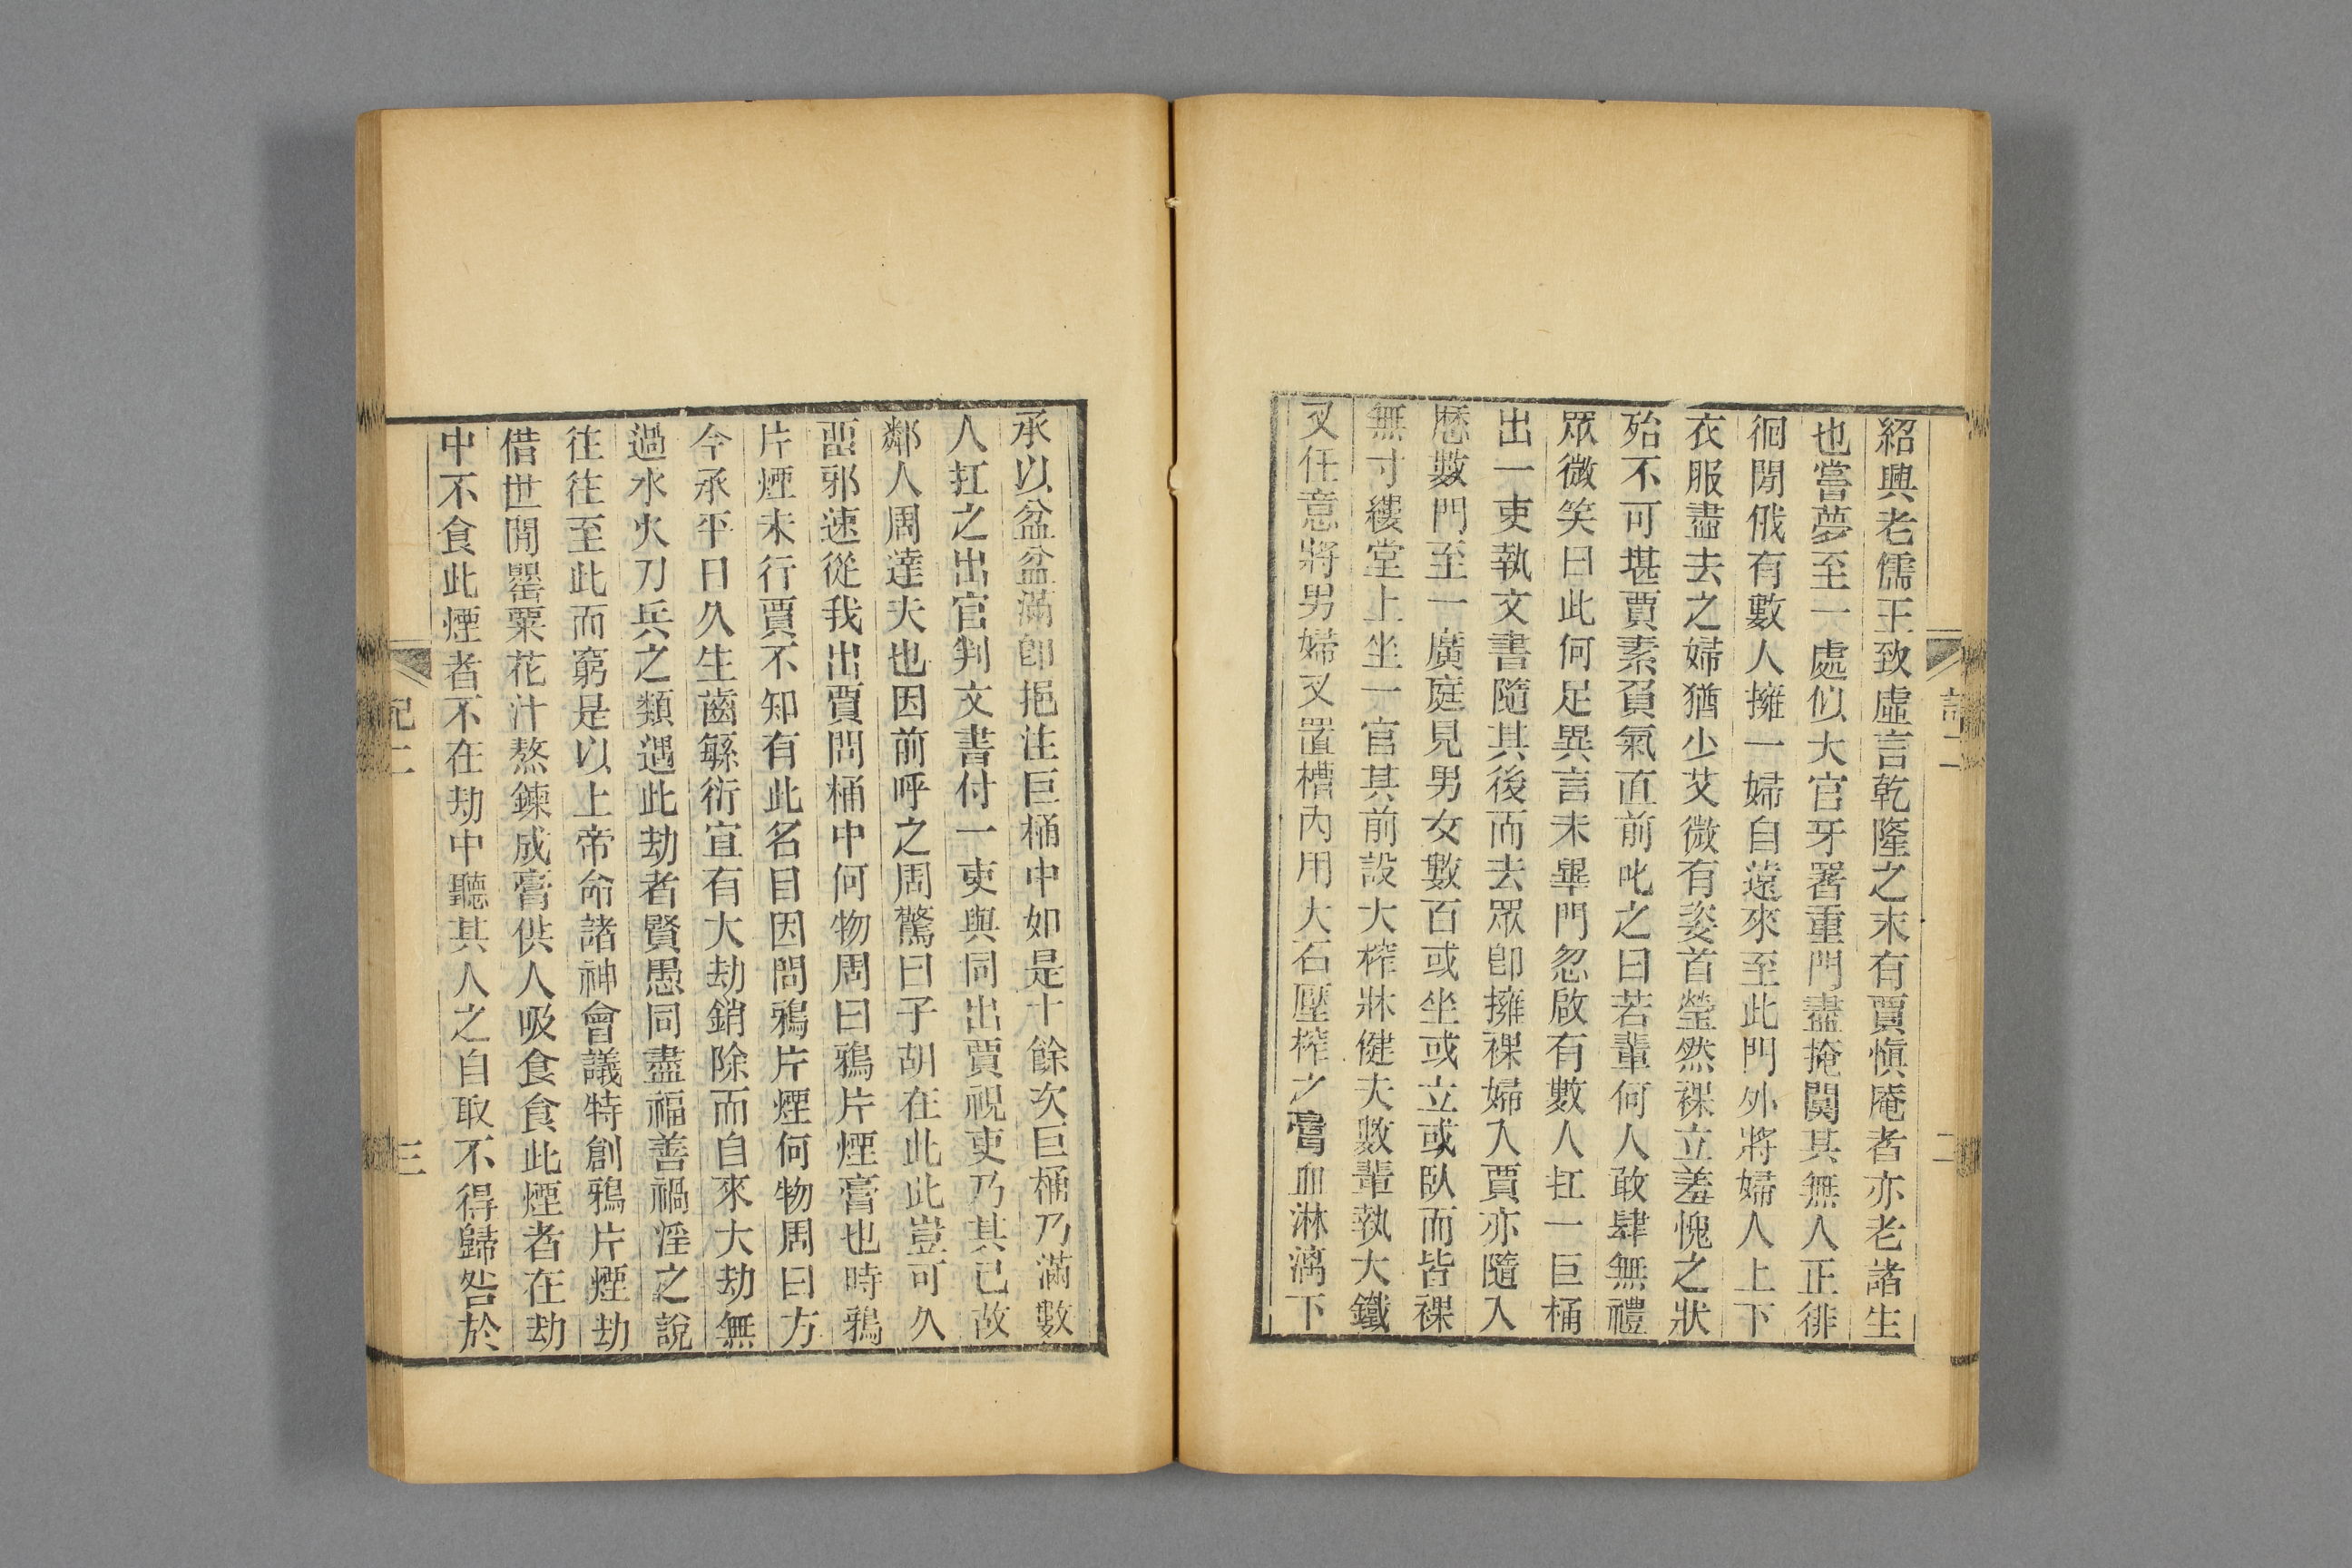 紹興老儒王致虛言乾隆之末有賈愼庵者亦老諸生
也嘗夢至一處似大官牙署重門盡掩闃其無人正徘
徊閒俄有數人擁一婦自遠來至此門外將婦人上下
衣服盡去之婦猶少艾微有姿首瑩然裸立羞愧之狀
殆不可堪賈素負氣直前叱之曰若輩何人敢肆無禮
眾微笑曰此何足異言未畢門忽啟有數人扛一巨桶
出一吏執文書隨其後而去眾卽擁裸婦入賈亦隨入
歷數門至一廣庭見男女數百或坐或立或臥而皆裸
無寸縷堂上坐一官其前設大榨牀健夫數輩執大鐵
叉任意將男婦叉置槽內用大石壓榨之膏血淋漓下
二
承以盆盆滿卽挹注巨桶中如是十餘次巨桶乃滿數
人扛之出官判文書付一吏與同出賈視吏乃其已故
鄰人周達夫也因前呼之周驚曰子胡在此此豈可久
畱邪速從我出賈問桶中何物周曰鴉片煙膏也時鴉
片煙未行賈不知有此名目因問鴉片煙何物周曰方
今承平日久生齒緐衍宜有大劫銷除而自來大劫無
過水火刀兵之類遇此劫者賢愚同盡福善禍淫之說
往往至此而窮是以上帝命諸神會議特創鴉片煙劫
借世閒罌粟花汁熬鍊成膏供人吸食食此煙者在劫
中不食此煙者不在劫中聽其人之自取不得歸咎於
記二
三